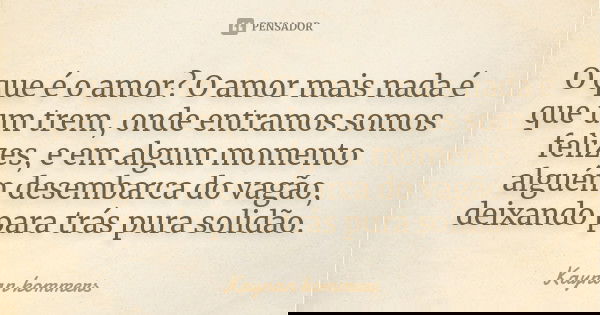 PENSADOR
O que é o amor? O amor mais nada é
que um trem, onde entramos somos
felizes, e em algum momento
alguém desembarca do vagão,
deixando para trás pura solidão.
kommers